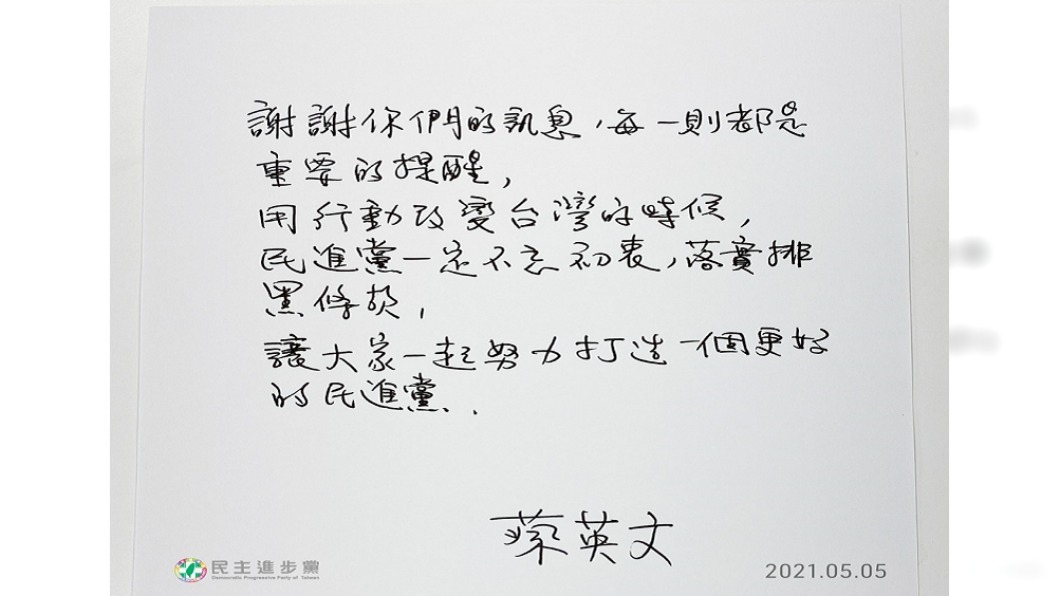 謝謝你們的訊息，每一則都是
重要的提醒，
用行動改變台灣的時候，
民進黨一定不忘初衷，落實排
黑條款，
讓大家一起努力打造一個更好
的民進黨.
蔡英文
民主進步黨
Democratic Progressive Party of Taiwan
2021.05.05